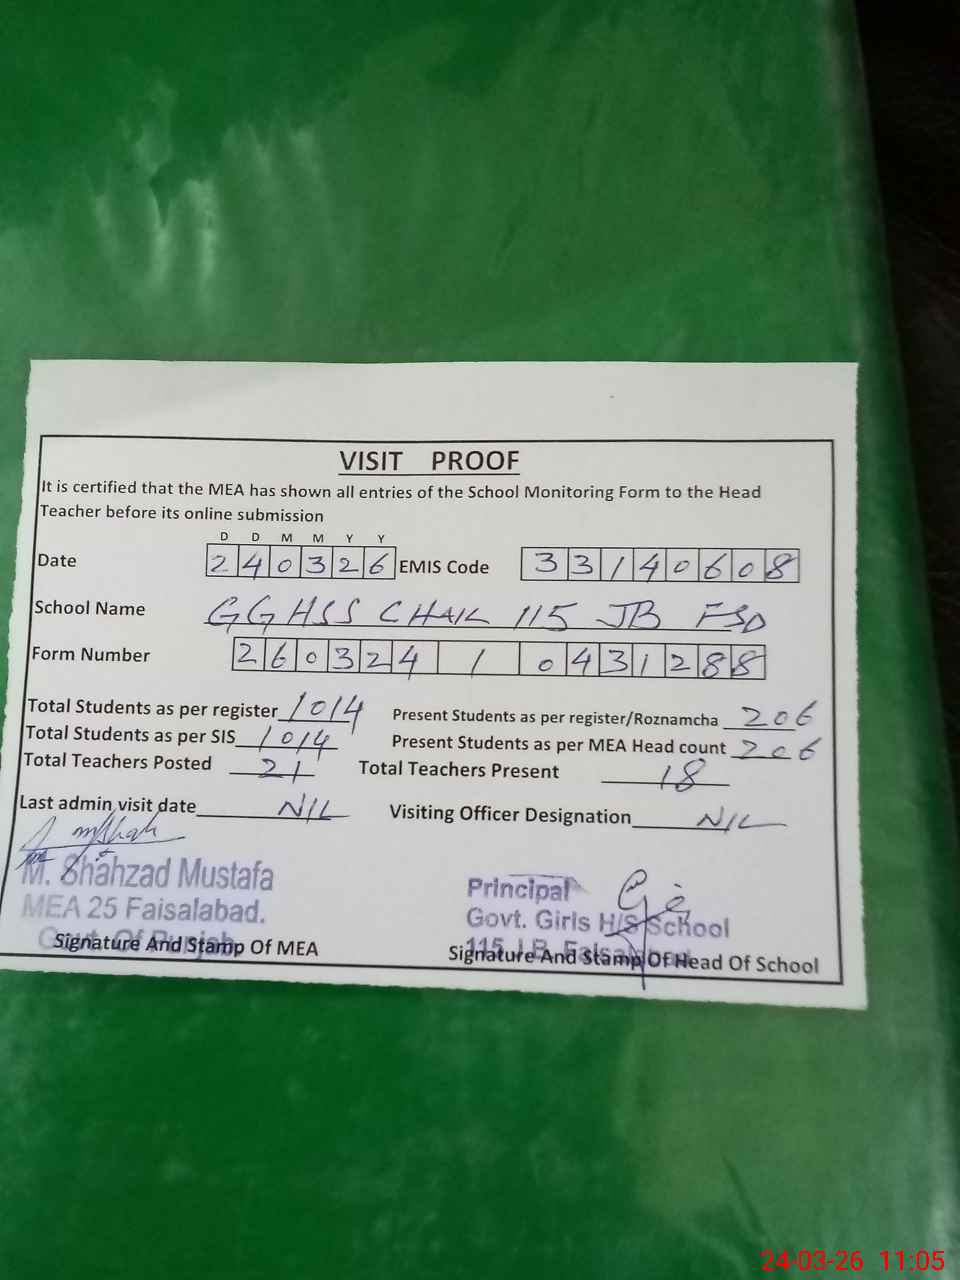 VISIT PROOF
It is certified that the MEA has shown all entries of the School Monitoring Form to the Head
Teacher before its online submission
D D M M Y Y
Date 2 4 0 3 2 6 EMIS Code 3 3 1 4 0 6 0 8
School Name GGHSS CHAK 115 JB FSD
Form Number 2 6 0 3 2 4 / 0 4 3 1 2 8 8
Total Students as per register 1014 Present Students as per register/Roznamcha 206
Total Students as per SIS 1014 Present Students as per MEA Head count 206
Total Teachers Posted 21 Total Teachers Present 18
Last admin visit date NIL Visiting Officer Designation NIL
M. Shahzad Mustafa
MEA 25 Faisalabad.
Govt. Of Punjab
Signature And Stamp Of MEA
Principal
Govt. Girls H/S School
115 J.B. Faisalabad
Signature And Stamp Of Head Of School
24-03-26 11:05